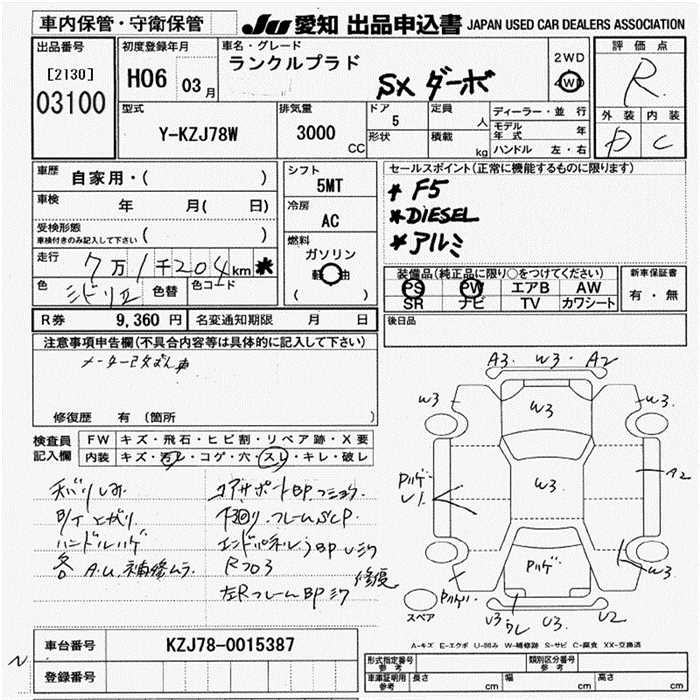 車内保管・守衛保管
JU 愛知 出品申込書 JAPAN USED CAR DEALERS ASSOCIATION
出品番号
[2130]
03100
初度登録年月
H06 03 月
車名・グレード
ランクルプラド
SX ターボ
2WD
4WD
評価点
R
外装 内装
D C
型式
Y-KZJ78W
排気量
3000 CC
ドア
5
形状
定員
人
積載
kg
ディーラー・並行
モデル年式 年
ハンドル 左・右
車歴
自家用・( )
車検
年 月( 日)
受検形態
車検付きのみ記入して下さい ( )
走行
7万1千204km *
色
ミドリII
色替
色コード
シフト
5MT
冷房
AC
燃料
ガソリン
軽油
( )
セールスポイント(正常に機能するものに限ります)
* F5
* DIESEL
* アルミ
装備品(純正品に限り○をつけてください)
PS PW エアB AW
SR ナビ TV カワシート
新車保証書
有・無
R券 9,360 円 名変通知期限 月 日
後日品
注意事項申告欄(不具合内容等は具体的に記入して下さい)
メーター改ざん車
修復歴 有 (箇所 )
検査員
記入欄
FW キズ・飛石・ヒビ割・リペア跡・X要
内装 キズ・汚レ・コゲ・穴・スレ・キレ・破レ
ハンドルハゲ
各 A.U 補修ムラ
コアサポートBP
下回り フレームS,C,P
エンドパネル
左Rフレーム BP
修復
A3 W3 A2
W3
W3
W3
W3
A2
W3
U3
U3
U2
スペア
A-キズ E-エクボ U-凹み W-補修跡 S-サビ C-腐食 XX-交換済
車台番号 KZJ78-0015387
登録番号
形式指定番号
参考
類別区分番号
参考
車庫証明用
参考
長さ cm 幅 cm 高さ cm